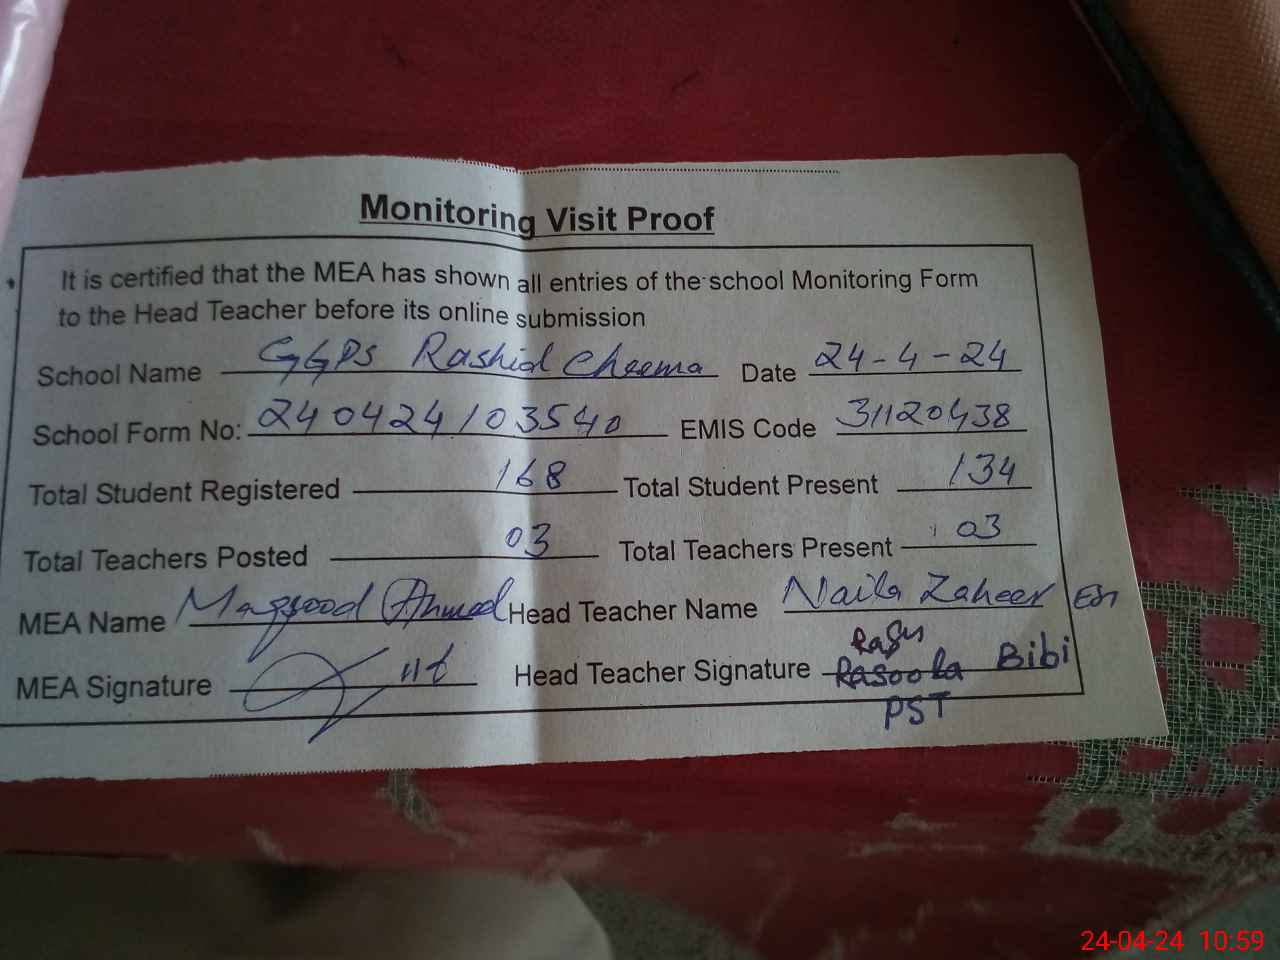 Monitoring Visit Proof
It is certified that the MEA has shown all entries of the school Monitoring Form
to the Head Teacher before its online submission
School Name GGPS Rashid Cheema Date 24-4-24
School Form No: 240424103540 EMIS Code 31120438
Total Student Registered 168 Total Student Present 134
Total Teachers Posted 03 Total Teachers Present 03
MEA Name Maqsood Ahmed Head Teacher Name Naila Zaheer
MEA Signature Head Teacher Signature Rasoola Bibi
PST
24-04-24 10:59